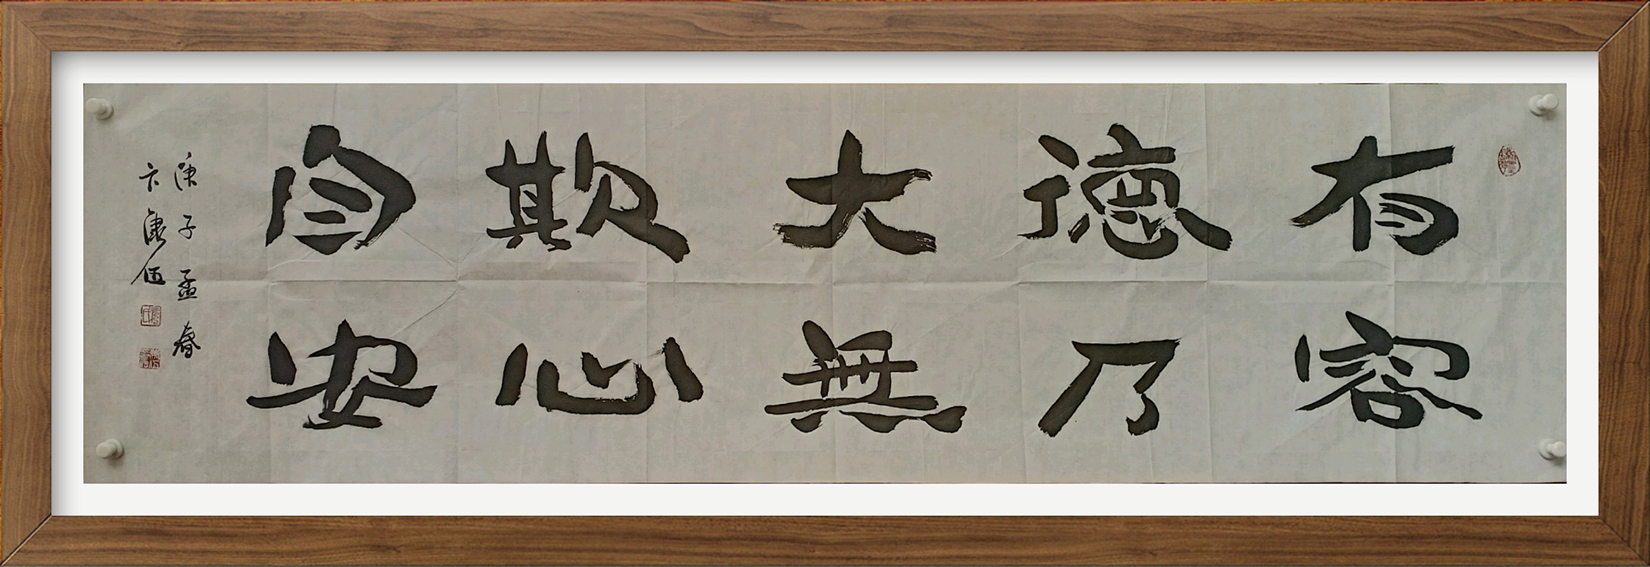 有容
德乃
大無
欺心
自安
庚子孟春
卞